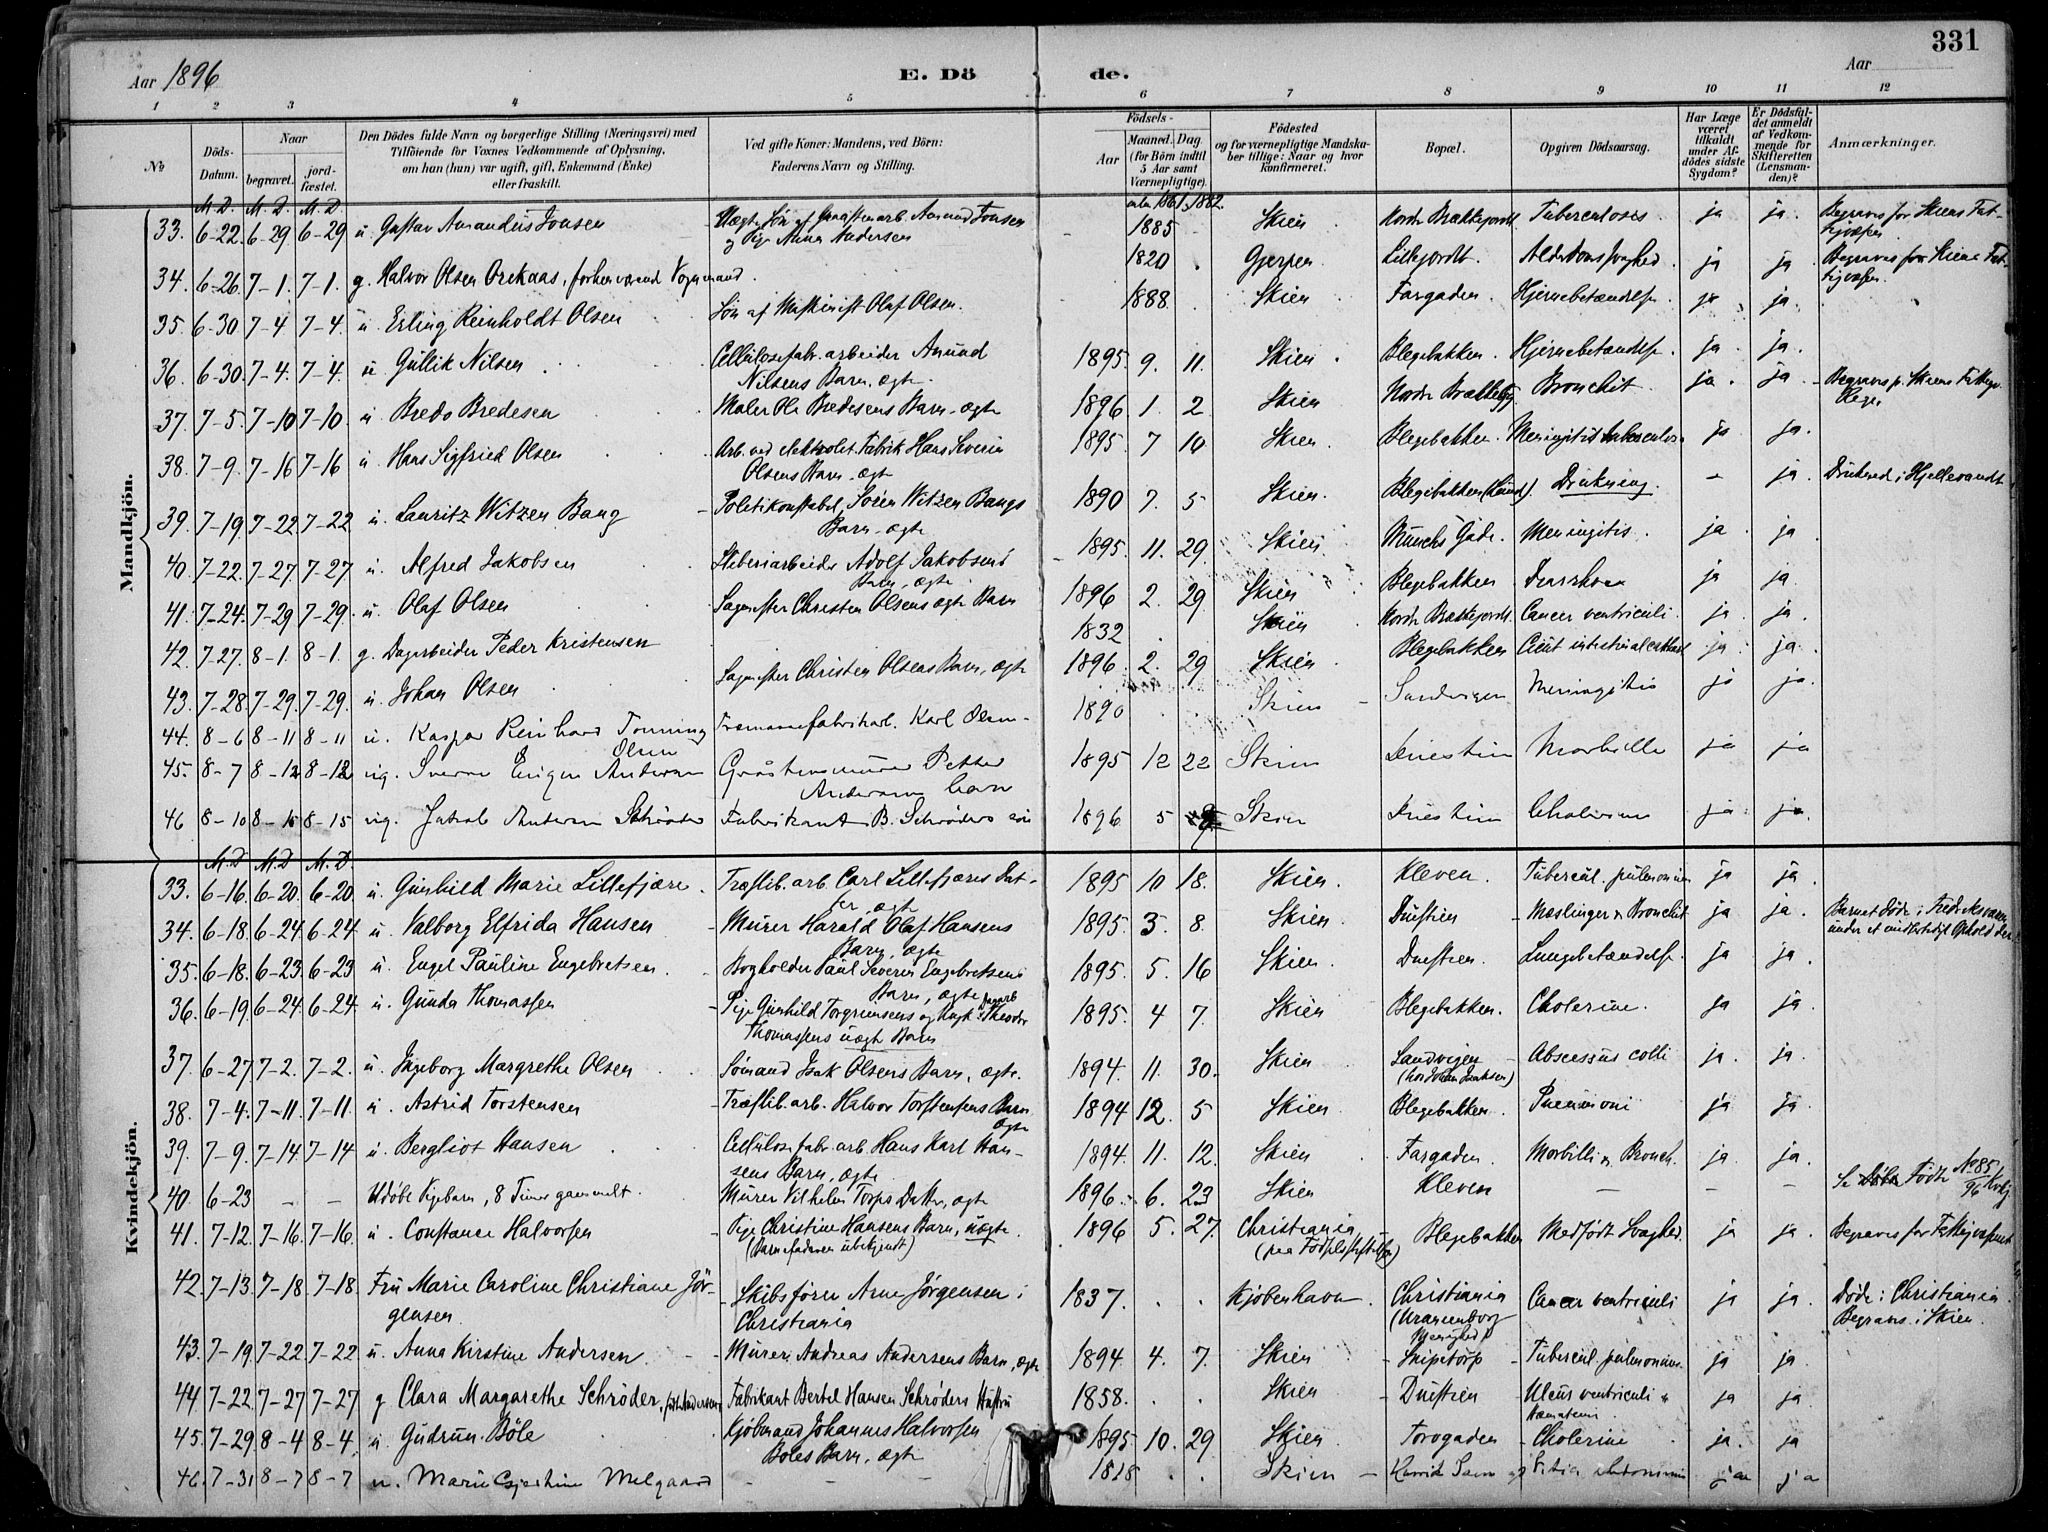 331
Aar 1896
E. Dö de.
Aar
1 2 3 4 5 6 7 8 9 10 11 12
No
Döds-Datum.
Naar
begravet.
jord-fæstet.
Den Dödes fulde Navn og borgerlige Stilling (Næringsvei) med
Tilföiende for Voxnes Vedkommende af Oplysning,
om han (hun) var ugift, gift, Enkemand (Enke)
eller fraskilt.
Ved gifte Koner: Mandens, ved Börn:
Faderens Navn og Stilling.
Födsels-
Aar
Maaned. Dag.
(for Börn indtil
5 Aar samt
Værnepligtige).
Födested
og for værnepligtige Mandska-
ber tillige: Naar og hvor
konfirmeret.
Bopæl.
Opgiven Dödsaarsag.
Har Læge
været
tilkaldt
under Af-
dödes sidste
Sygdom?
Er Dödsfal-
det anmeldt
af Vedkom-
mende for
Skifteretten
(Lensman-
den)?
Anmærkninger.
M. D. M. D. M. D.
Mandkjön.
33. 6-22. 6-29. 6-29 u. Gustav Amandus Jonsen Uægte Sön af Amund Jonsen 1885 Skien Nordre Brækkejordet Tuberculoses ja ja. Begraves for Skiens Fat-
og Pige Anna Andersen
34. 6-26. 7-1. 7-1. g. Halvor Olsen forhenværende Vognmand. 1820 Gjerpen Lillejordet. Alderdomssvaghed. ja ja Begraves for Skiens Fat-
tigvæsen
35. 6-30 7-4 7-4. u. Erling Reinholdt Olsen Sön af Maskinist Olaf Olsen. 1888 Skien Fargaden. Hjernebetændelse ja ja.
36. 6-30. 7-4. 7-4. u Gullik Nilsen Cellulosefabr.arbeider Amund 1895. 9. 11. Skien. Blegebakken. Hjernebetændelse. ja. ja.
Nilsens Barn, ægte.
37. 7-5. 7-10 7-10 u Bredo Bredesen Maler Ole Bredesens Barn, ægte 1896 1. 2 Skien Nordre Brækkejord. Bronchit. ja. ja Begraves p. Skiens Fattigv.
38. 7-9. 7-16 7-16 u Hans Sigfried Olsen Arb. ved Fabrik Hans Severin 1895. 7 10. Skien. Blegebakken. Meningitis tuberculos. ja ja.
Olsens Barn, ægte
39. 7-19. 7-22 7-22 u. Lauritz Witzen Bang Politikonstabel Sören Witzen Bangs 1890 7. 5 Skien. Blegebakken (Lund). Drukning. - ja. Druknede i Hjellevandet
Barn, ægte
40 7-22. 7-27 7-27 u. Alfred Jakobsen Adolf Jakobsens 1895. 11. 29. Skien. Munchs Gade. Meningitis. ja ja.
Barn, ægte.
41. 7-24. 7-29 7-29. u. Olaf Olsen Sagmester Christen Olsens ægte Barn 1896 2. 29 Skien Blegebakken Diarrhoea ja ja.
42. 7-27. 8-1. 8-1. g. Dagarbeider Peder Kristensen 1832 Skien Nordre Brækkejordet. Cancer ventriculi. ja ja.
43. 7-28 7-29. 7-29. u. Johan Olsen Sagmester Christen Olsens Barn, ægte 1896. 2. 29 Skien. Blegebakken ja ja.
44. 8-6 8-11 8-11 u. Kaspar Reinhard Tonning Karl Olsen 1890 Skien Sandvigen Meningitis ja ja.
Olsen
45. 8-7 8-12 8-12 ug. Sverre Andersen Petter 1895 12 22 Skien Duestien Morbille ja ja
Andersens barn
46 8-10 8-15 8-15 ug. Jakob Andersen Schröder Fabrikant B. Schröders sön 1896 5 Skien Duestien Cholerine ja ja.
M. D M. D M. D
Kvindekjön.
33. 6-16. 6-20. 6-20 u Gunhild Marie Lillefjære. Træslib.arb. Carl Lillefjæres Dat- 1895 10 18. Skien. Kleven. Tubercul. pulmonum ja ja.
ter, ægte
34. 6-18. 6-24. 6-24 u Valborg Elfrida Hansen Murer Harald Olaf Hansens 1895. 3. 8. Skien Duestien Mæslinger & Bronchit. ja ja. Barnet döde i Fredriksværn
Barn, ægte under et midlertidigt Ophold der
35. 6-18. 6-23 6-23 u. Engel Pauline Engebretsen. Borgholder Paul Severin Engebretsens 1895. 5. 16 Skien. Duestien. Lungebetændelse. ja ja.
Barn, ægte
36. 6-19. 6-24 6-24. u Gunda Thomassen Pige Gunhild Torgrimsens og Ungk. Dagarb. Theodor 1895. 4 7. Skien Blegebakken. Cholerine. ja ja
Thomassens uægte Barn
37. 6-27 7-2. 7-2. u. Ingeborg Margrethe Olsen Sömand Isak Olsens Barn, ægte. 1894. 11. 30. Skien Sandvigen Abscessus colli ja. ja.
38. 7-4. 7-11. 7-11. u. Astrid Torstensen Træslib.arb. Halvor Torstensens Barn 1894 12. 5 Skien Blegebakken. Pneumoni ja ja.
ægte
39. 7-9. 7-14. 7-14 u. Bergliot Hansen Cellulosefabr.arb. Hans Karl Han- 1894. 11. 12. Skien Fargaden. Morbilli & Bronch. ja ja.
sens Barn, ægte
40. 6-23 - - Udöbt Pigebarn, 8 Timer gammelt. Murer Vilhelm Torps Datter, ægte 1896. 6. 23 Skien Kleven - - - Se Födte No 85/96 Kvkj
41. 7-12. 7-16. 7-16. u. Constance Halvorsen Pige Christine Hansens Barn, uægte. 1896 5. 27. Christiania Blegebakken Medfödt Svaghed. ja ja. Begraves for Fattigvæsenet
(Barnefaderen ubekjendt) (paa Födselsstiftelsen)
42. 7-13. 7-18 7-18. Fru Marie Caroline Christiane Jör- Skibsförer Arne Jörgensen i 1837. Kjöbenhavn. Christiania Cancer ventriculi ja ja. Döde i Christiania
gensen Christiania (Uranienborg Begraves i Skien.
Menighed)
43. 7-19. 7-22 7-22 u. Anna Kirstine Andersen. Murer Andreas Andersens Barn, ægte 1894. 4. 7. Skien Snipetorp Tubercul. pulmonum. ja ja.
44 7-22. 7-27 7-27 g Clara Margarethe Schröder, född Andersen Fabrikant Bertel Hansen Schröders Hustru 1858. Skien Duestien Ulcus ventriculi ja ja
45. 7-29. 8-4 8-4 u Gudrun Böle Kjöbmand Johannes Halvorsen 1895. 10. 29 Skien Torvgaden Cholerine ja. ja
Böles Barn, ægte
46. 7-31 8-7 8-7 u. Marie Gjertine Melgaard - - 1818 Skien ja ja